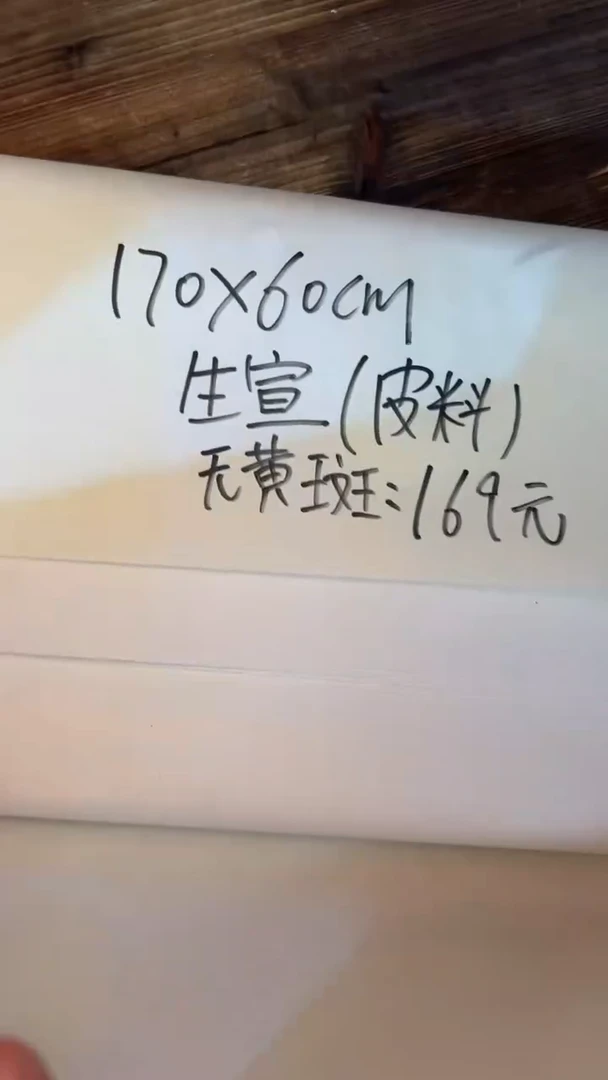 170X60cm
生宣(皮料)
无黄斑:169元